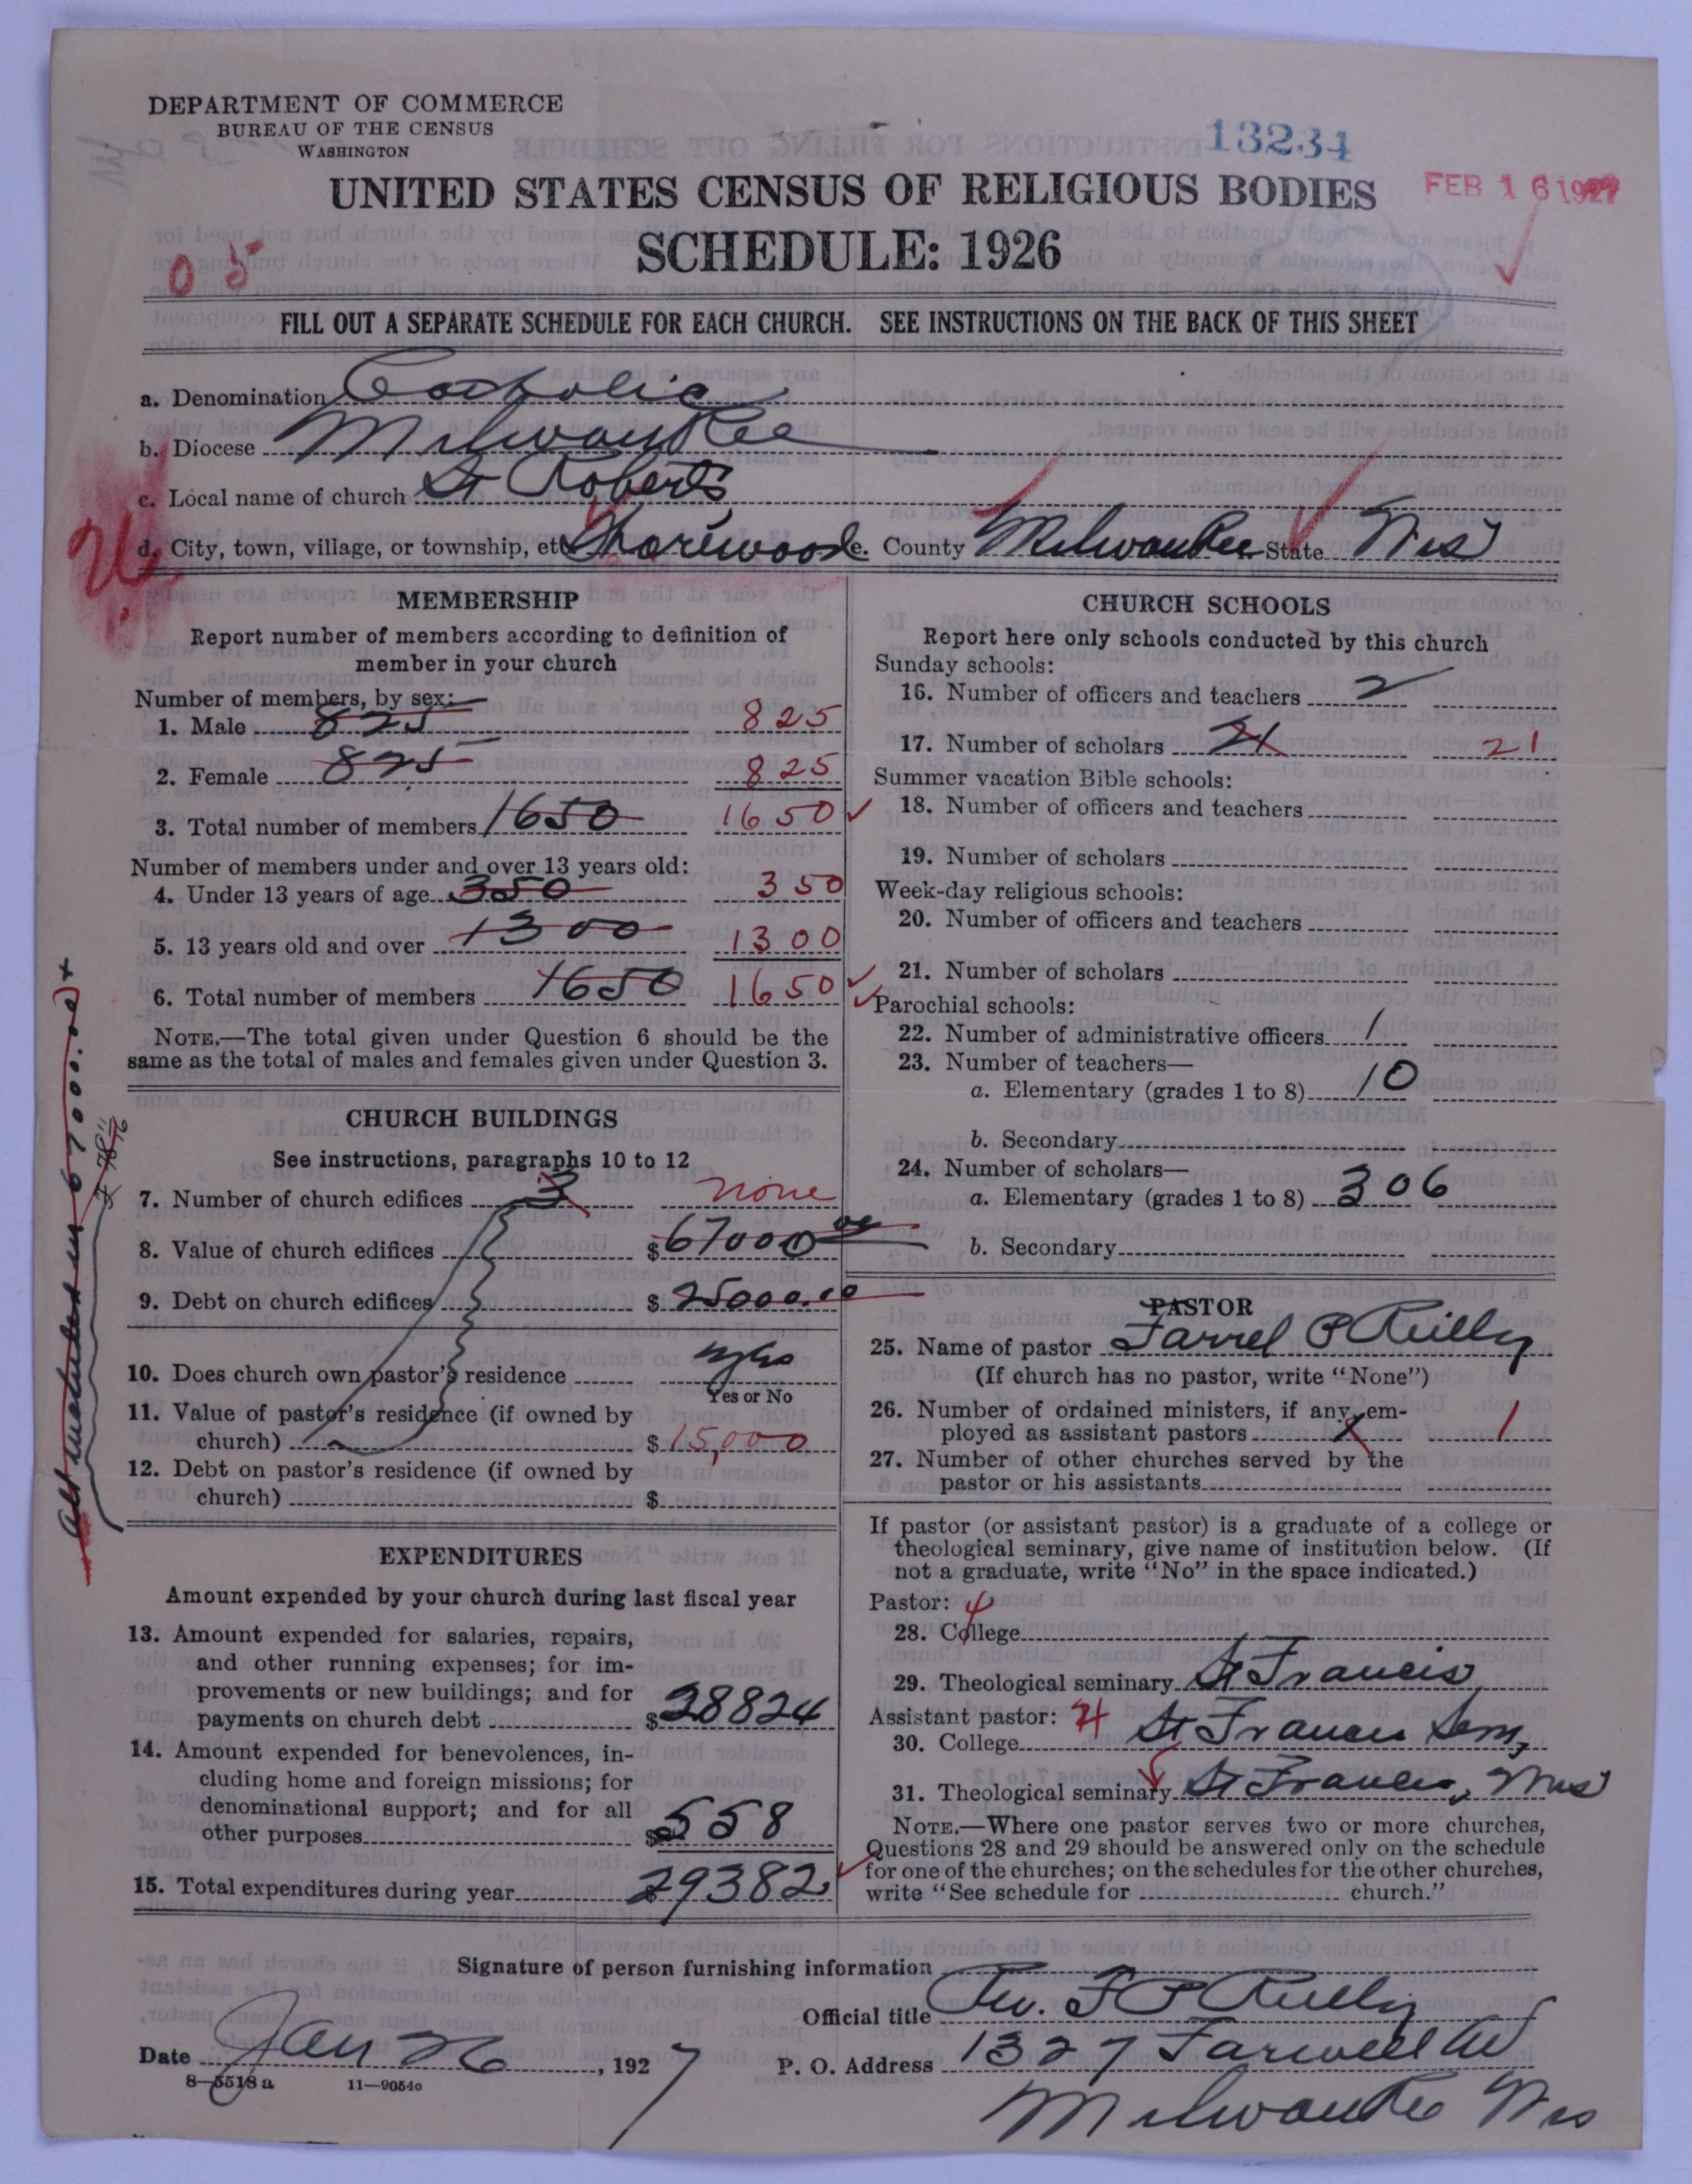 DEPARTMENT OF COMMERCE
BUREAU OF THE CENSUS
WASHINGTON
13234
UNITED STATES CENSUS OF RELIGIOUS BODIES
FEB 16 1927
SCHEDULE: 1926
0 5
FILL OUT A SEPARATE SCHEDULE FOR EACH CHURCH. SEE INSTRUCTIONS ON THE BACK OF THIS SHEET
a. Denomination Catholic
b. Diocese Milwaukee
c. Local name of church St Roberts
d. City, town, village, or township, etc Shorewood e. County Milwaukee State Wis
MEMBERSHIP
Report number of members according to definition of
member in your church
Number of members, by sex:
1. Male 825 825
2. Female 825 825
3. Total number of members 1650 1650
Number of members under and over 13 years old:
4. Under 13 years of age 350 350
5. 13 years old and over 1300 1300
6. Total number of members 1650 1650
NOTE.—The total given under Question 6 should be the
same as the total of males and females given under Question 3.
CHURCH BUILDINGS
See instructions, paragraphs 10 to 12
7. Number of church edifices 3 none
8. Value of church edifices $67000 00
9. Debt on church edifices $25000.00
10. Does church own pastor's residence yes
Yes or No
11. Value of pastor's residence (if owned by
church) $15,000
12. Debt on pastor's residence (if owned by
church) $
All included in 67000.00
EXPENDITURES
Amount expended by your church during last fiscal year
13. Amount expended for salaries, repairs,
and other running expenses; for im-
provements or new buildings; and for
payments on church debt $28824
14. Amount expended for benevolences, in-
cluding home and foreign missions; for
denominational support; and for all
other purposes $558
15. Total expenditures during year $29382
CHURCH SCHOOLS
Report here only schools conducted by this church
Sunday schools:
16. Number of officers and teachers 2
17. Number of scholars 21 21
Summer vacation Bible schools:
18. Number of officers and teachers
19. Number of scholars
Week-day religious schools:
20. Number of officers and teachers
21. Number of scholars
Parochial schools:
22. Number of administrative officers 1
23. Number of teachers—
a. Elementary (grades 1 to 8) 10
b. Secondary
24. Number of scholars—
a. Elementary (grades 1 to 8) 306
b. Secondary
PASTOR
25. Name of pastor Farrel P Reilly
(If church has no pastor, write "None")
26. Number of ordained ministers, if any, em-
ployed as assistant pastors 1
27. Number of other churches served by the
pastor or his assistants
If pastor (or assistant pastor) is a graduate of a college or
theological seminary, give name of institution below. (If
not a graduate, write "No" in the space indicated.)
Pastor: 4
28. College
29. Theological seminary St Francis
Assistant pastor: 4
30. College St Francis Sem,
31. Theological seminary St Francis, Wis
NOTE.—Where one pastor serves two or more churches,
Questions 28 and 29 should be answered only on the schedule
for one of the churches; on the schedules for the other churches,
write "See schedule for church."
Signature of person furnishing information
Official title Rev. F P Reilly
Date Jan 26, 1927 P. O. Address 1327 Farwell Av
8—5518 a 11—9054c
Milwaukee Wis